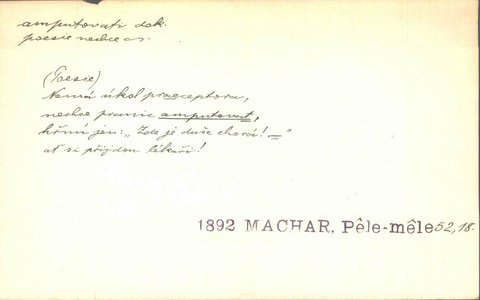 amputovati dok.
poesie nechce
(Poesie)
Nemá úkol praeceptora,
nechce pranic amputovat,
hřmí jen: „Zde je duše chorá! —"
ať si přijdou lékaři!
1892 MACHAR, Pêle-mêle 52, 18.